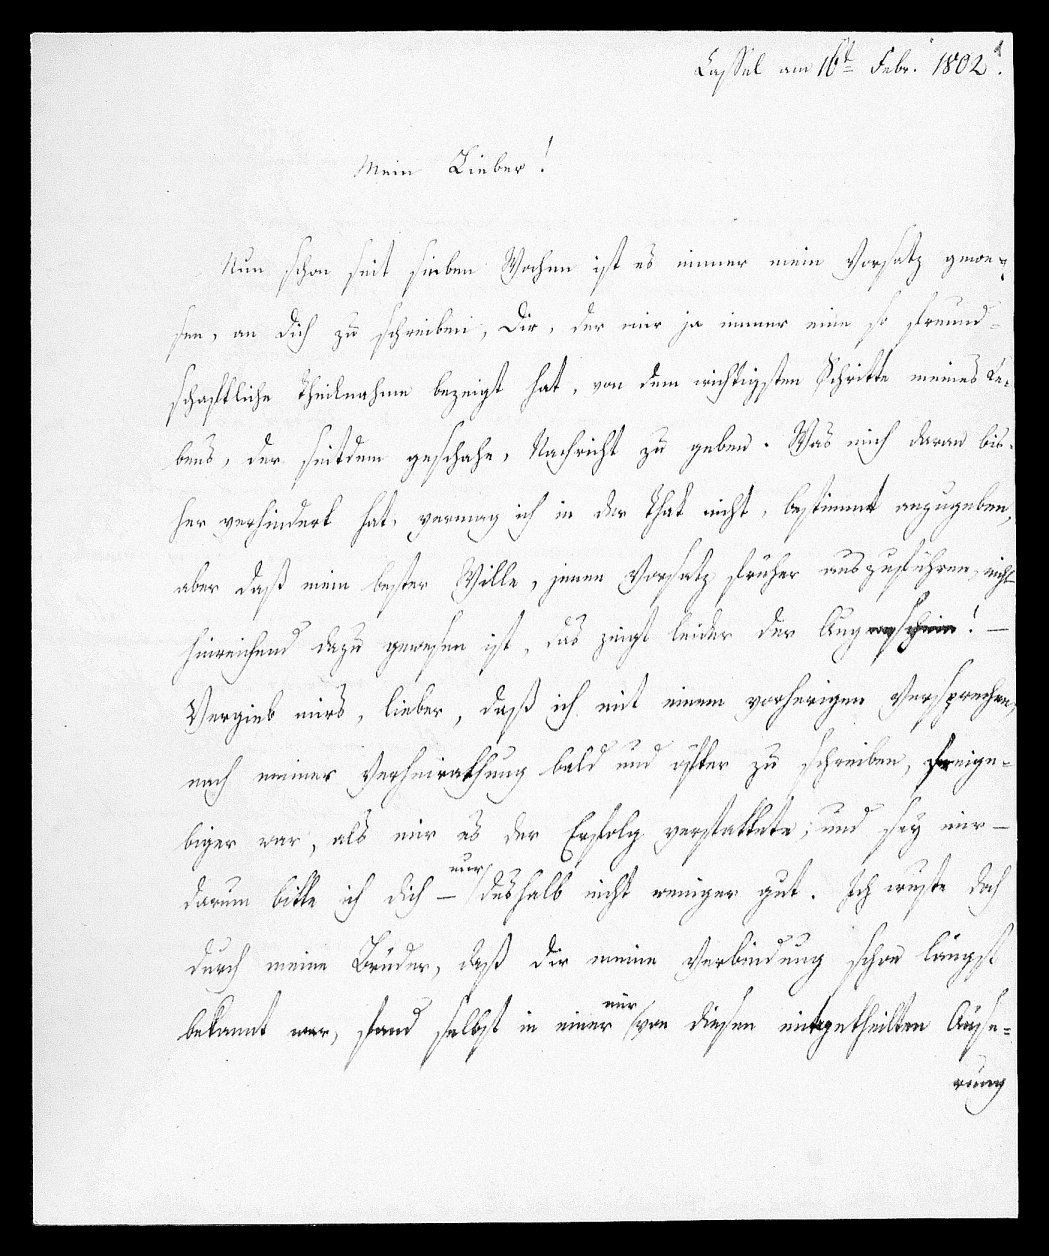 Cassel am 16t Febr. 1802.
Mein Lieber!
Nun schon seit sieben Wochen ist es immer mein Vorsatz gewe-
sen, an Dich zu schreiben, Dir, der mir ja immer eine so freund-
schaftliche Theilnahme bezeigt hat, von dem wichtigsten Schritte meines Le-
bens, der seitdem geschahe, Nachricht zu geben. Was mich daran bis-
her verhindert hat, vermag ich in der That nicht, bestimmt anzugeben,
aber daß mein bester Wille, jenen Vorsatz früher auszuführen, nicht
hinreichend dazu gewesen ist, das zeigt leider der Augenschein! —
Vergieb mirs, lieber, daß ich mit einem vorherigen Versprechen,
nach meiner Verheirathung bald und öfter zu schreiben, freige-
biger war, als mir es der Erfolg verstattete; und sey mir —
darum bitte ich Dich — nur deshalb nicht weniger gut. Ich wuste doch
durch meine Brüder, daß dir meine Verbindung schon längst
bekannt war, fand selbst in einer mir von diesen mitgetheilten Äuse-
rung